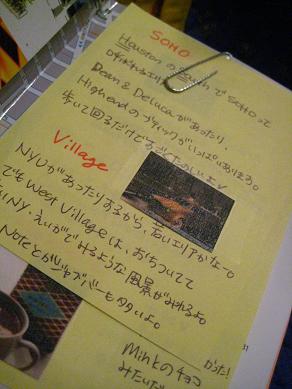 SOHO
Houston の South で SOHO って
Dean & Delucaがあったり、
High endのブティックがいっぱいあります。
歩いて回るだけでも
Village
NYUがあったりするから、若いエリアかな〜。
でもWest Villageは、おちついてて
NY. えいがでみるような風景がみれるよ。
Noteとかジャズバーも多いよ。
かった!
Minkのチョコ
みたいな